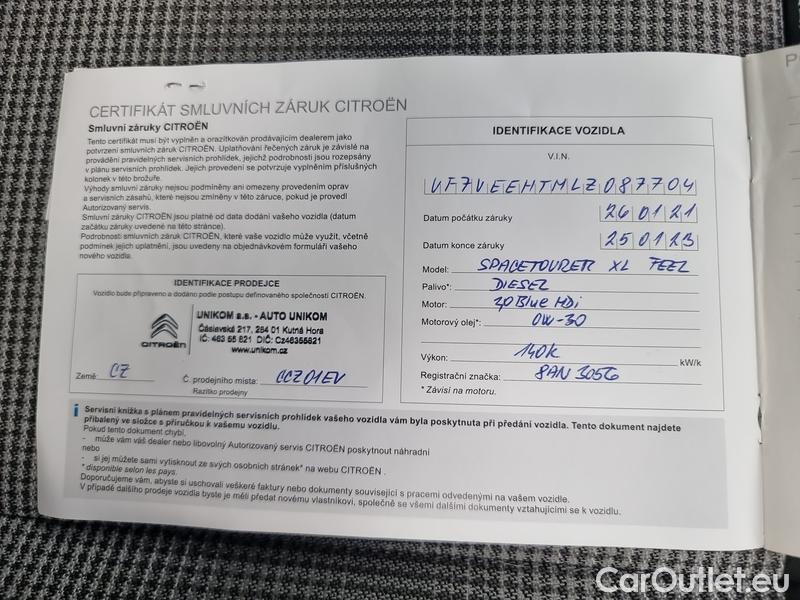 CERTIFIKÁT SMLUVNÍCH ZÁRUK CITROËN
Smluvní záruky CITROËN
Tento certifikát musí být vyplněn a orazítkován prodávajícím dealerem jako
potvrzení smluvních záruk CITROËN. Uplatňování řečených záruk je závislé na
provádění pravidelných servisních prohlídek, jejichž podrobnosti jsou rozepsány
v plánu servisních prohlídek. Jejich provedení se potvrzuje vyplněním příslušných
kolonek v této brožuře.
Výhody smluvní záruky nejsou podmíněny ani omezeny provedením oprav
a servisních zásahů, které nejsou zmíněny v této záruce, pokud je provedl
Autorizovaný servis.
Smluvní záruky CITROËN jsou platné od data dodání vašeho vozidla (datum
začátku záruky uvedené na této stránce).
Podrobnosti smluvních záruk CITROËN, které vaše vozidlo může využít, včetně
podmínek jejich uplatnění, jsou uvedeny na objednávkovém formuláři vašeho
nového vozidla.
IDENTIFIKACE PRODEJCE
Vozidlo bude připraveno a dodáno podle postupu definovaného společností CITROËN.
CITROËN
UNIKOM a.s. - AUTO UNIKOM
Čáslavská 217, 284 01 Kutná Hora
IČ: 463 55 821 DIČ: Cz46355821
www.unikom.cz
Země: CZ
Č. prodejního místa: CCZ01EV
Razítko prodejny
IDENTIFIKACE VOZIDLA
V.I.N.
VF7VEEHTMLZ087704
Datum počátku záruky 260121
Datum konce záruky 250123
Model: SPACETOURER XL FEEL
Palivo*: DIESEL
Motor: 2,0 Blue HDi
Motorový olej*: 0W-30
Výkon: 140k kW/k
Registrační značka: 8AN 3056
* Závisí na motoru.
i Servisní knížka s plánem pravidelných servisních prohlídek vašeho vozidla vám byla poskytnuta při předání vozidla. Tento dokument najdete
přibalený ve složce s příručkou k vašemu vozidlu.
Pokud tento dokument chybí,
- může vám váš dealer nebo libovolný Autorizovaný servis CITROËN poskytnout náhradní
nebo
- si jej můžete sami vytisknout ze svých osobních stránek* na webu CITROËN .
* disponible selon les pays.
Doporučujeme vám, abyste si uschovali veškeré faktury nebo dokumenty související s pracemi odvedenými na vašem vozidle.
V případě dalšího prodeje vozidla byste je měli předat novému vlastníkovi, společně se všemi dalšími dokumenty vztahujícími se k vozidlu.
CarOutlet.eu